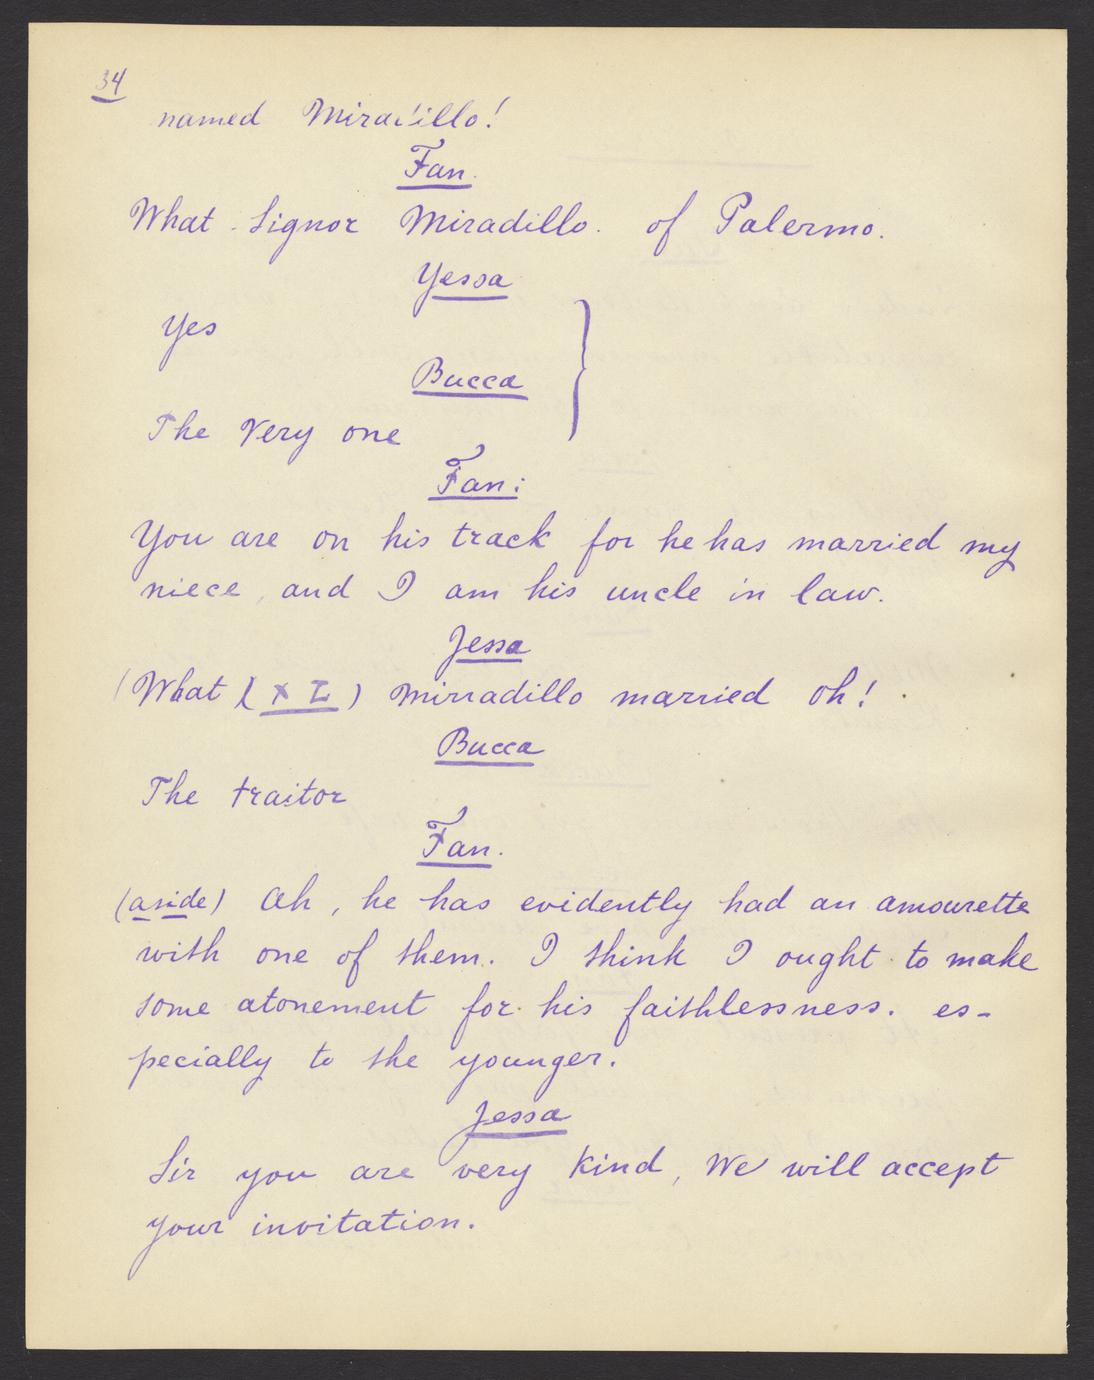 34
named Miradillo!
Fan.
What Signor Miradillo. of Palermo.
Yessa
Yes
Bucca
The very one
Fan:
You are on his track for he has married my
niece, and I am his uncle in law.
Jessa
(What (x L) Mirradillo married oh!
Bucca
The traitor
Fan.
(aside) Ah, he has evidently had an amourette
with one of them. I think I ought to make
some atonement for his faithlessness. es-
pecially to the younger.
Jessa
Sir you are very kind, We will accept
your invitation.